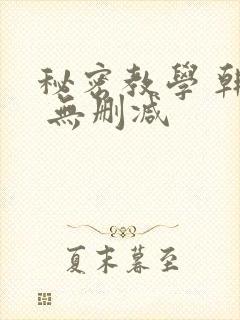 秘密教學 韓
無刪減
夏末暮至